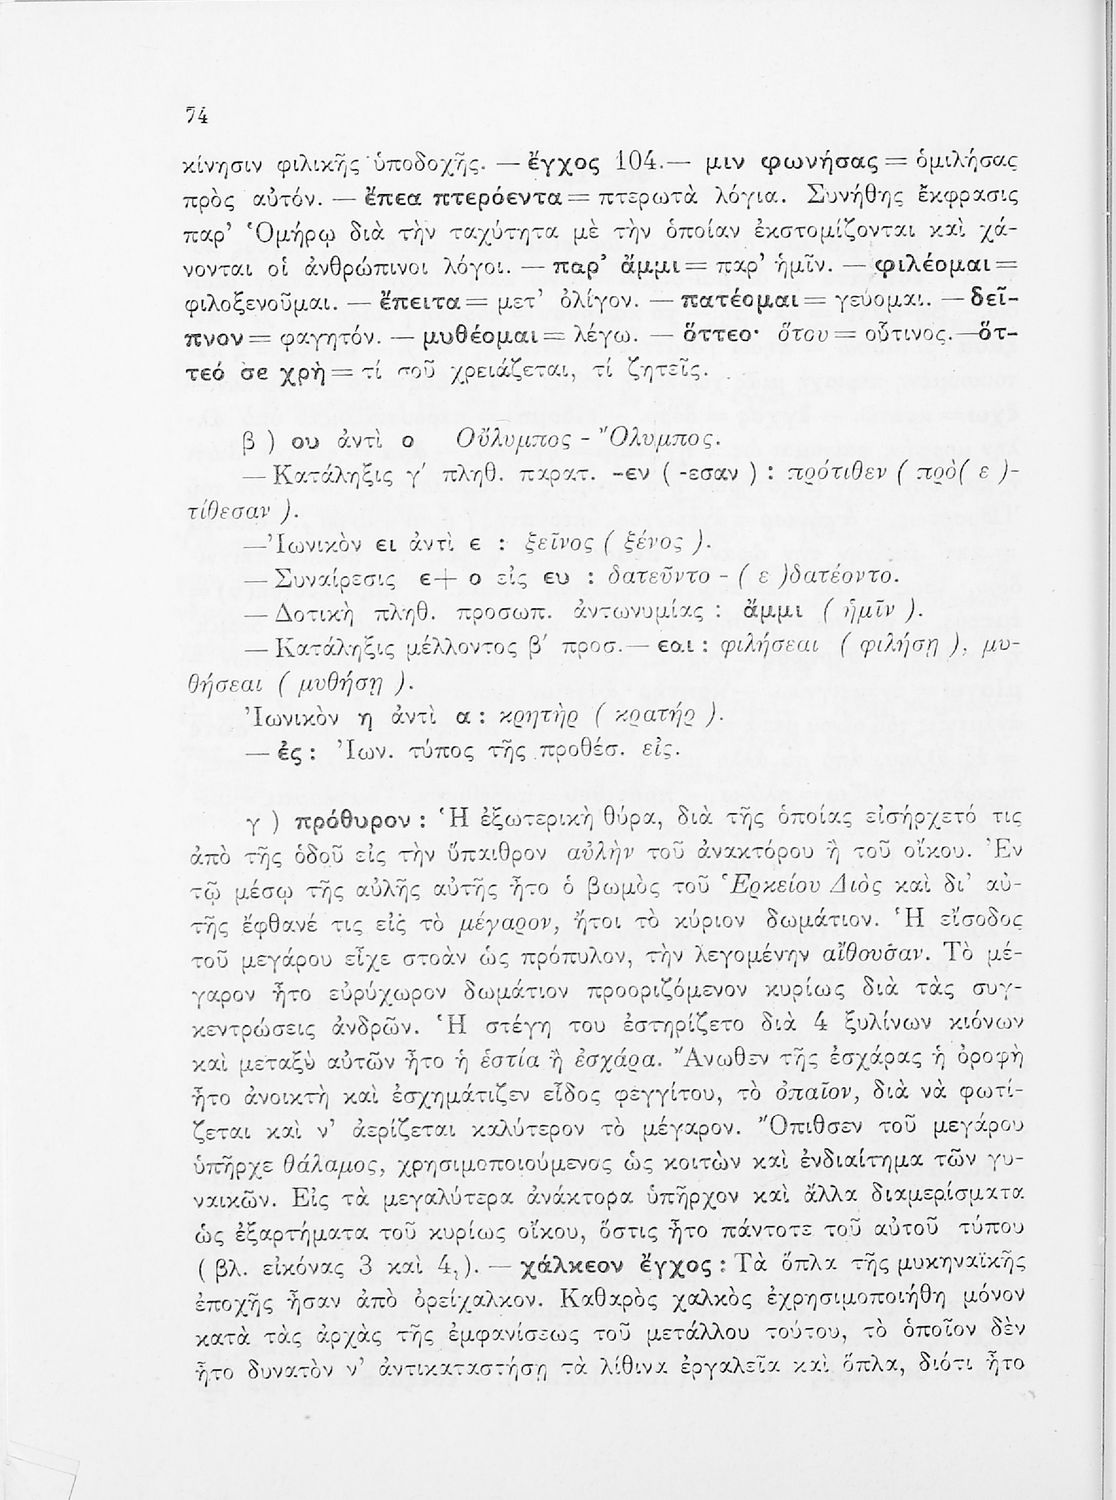 74
κίνησιν φιλικῆς ὑποδοχῆς. — ἔγχος 104.— μιν φωνήσας = ὁμιλήσας
πρὸς αὐτόν. — ἔπεα πτερόεντα = πτερωτὰ λόγια. Συνήθης ἔκφρασις
παρ’ Ὁμήρῳ διὰ τὴν ταχύτητα μὲ τὴν ὁποίαν ἐκστομίζονται καὶ χά-
νονται οἱ ἀνθρώπινοι λόγοι. — παρ’ ἄμμι = παρ’ ἡμῖν. — φιλέομαι =
φιλοξενοῦμαι. — ἔπειτα = μετ’ ὀλίγον. — πατέομαι = γεύομαι. — δεῖ-
πνον = φαγητόν. — μυθέομαι = λέγω. — ὅττεο· ὅτου = οὗτινος.—ὅτ-
τεό σε χρὴ = τί σοῦ χρειάζεται, τί ζητεῖς.
β ) ου ἀντὶ ο Οὔλυμπος - Ὄλυμπος.
— Κατάληξις γ΄ πληθ. παρατ. -εν ( -εσαν ) : πρότιθεν ( πρὸ( ε )-
τίθεσαν ).
—Ἰωνικὸν ει ἀντὶ ε : ξεῖνος ( ξένος ).
— Συναίρεσις ε+ ο εἰς ευ : δατεῦντο - ( ε )δατέοντο.
— Δοτικὴ πληθ. προσωπ. ἀντωνυμίας : ἄμμι ( ἡμῖν ).
— Κατάληξις μέλλοντος β΄ προσ.— εαι : φιλήσεαι ( φιλήσῃ ), μυ-
θήσεαι ( μυθήσῃ ).
Ἰωνικὸν η ἀντὶ α : κρητὴρ ( κρατήρ ).
— ἐς : Ἰων. τύπος τῆς προθέσ. εἰς.
γ ) πρόθυρον : Ἡ ἐξωτερικὴ θύρα, διὰ τῆς ὁποίας εἰσήρχετό τις
ἀπὸ τῆς ὁδοῦ εἰς τὴν ὕπαιθρον αὐλὴν τοῦ ἀνακτόρου ἢ τοῦ οἴκου. Ἐν
τῷ μέσῳ τῆς αὐλῆς αὐτῆς ἦτο ὁ βωμὸς τοῦ Ἑρκείου Διὸς καὶ δι’ αὐ-
τῆς ἔφθανέ τις εἰς τὸ μέγαρον, ἤτοι τὸ κύριον δωμάτιον. Ἡ εἴσοδος
τοῦ μεγάρου εἶχε στοὰν ὡς πρόπυλον, τὴν λεγομένην αἴθουσαν. Τὸ μέ-
γαρον ἦτο εὐρύχωρον δωμάτιον προοριζόμενον κυρίως διὰ τὰς συγ-
κεντρώσεις ἀνδρῶν. Ἡ στέγη του ἐστηρίζετο διὰ 4 ξυλίνων κιόνων
καὶ μεταξὺ αὐτῶν ἦτο ἡ ἑστία ἢ ἐσχάρα. Ἄνωθεν τῆς ἐσχάρας ἡ ὀροφὴ
ἦτο ἀνοικτὴ καὶ ἐσχημάτιζεν εἶδος φεγγίτου, τὸ ὀπαῖον, διὰ νὰ φωτί-
ζεται καὶ ν’ ἀερίζεται καλύτερον τὸ μέγαρον. Ὄπιθσεν τοῦ μεγάρου
ὑπῆρχε θάλαμος, χρησιμοποιούμενος ὡς κοιτὼν καὶ ἐνδιαίτημα τῶν γυ-
ναικῶν. Εἰς τὰ μεγαλύτερα ἀνάκτορα ὑπῆρχον καὶ ἄλλα διαμερίσματα
ὡς ἐξαρτήματα τοῦ κυρίως οἴκου, ὅστις ἦτο πάντοτε τοῦ αὐτοῦ τύπου
( βλ. εἰκόνας 3 καὶ 4,). — χάλκεον ἔγχος : Τὰ ὅπλα τῆς μυκηναϊκῆς
ἐποχῆς ἦσαν ἀπὸ ὀρείχαλκον. Καθαρὸς χαλκὸς ἐχρησιμοποιήθη μόνον
κατὰ τὰς ἀρχὰς τῆς ἐμφανίσεως τοῦ μετάλλου τούτου, τὸ ὁποῖον δὲν
ἦτο δυνατὸν ν’ ἀντικαταστήσῃ τὰ λίθινα ἐργαλεῖα καὶ ὅπλα, διότι ἦτο